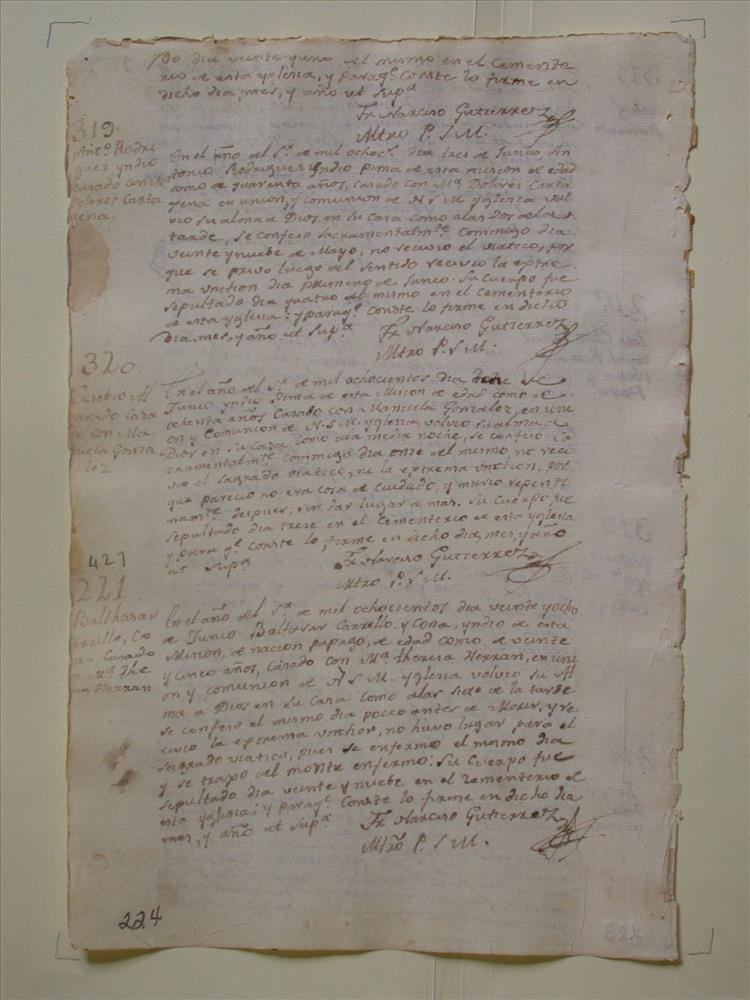 do dia veinte y uno del mismo en el Cemente
rio de esta yglesia, y paraqe. Conste lo firme en
dicho dia, mes, y año ut Supa
Fr. Narciso Gutierrez
Mtro P. S M.
319
Anto. Rodri
guez yndio
casado con Ma
Dolores Carta
gena.
En el año del Sr. de mil ochocs. dia tres de Junio, An
tonio Rodriguez yndio Pima de esta mision de edad
como de quarenta años, casado con Ma. Dolores Carta
gena en union, y comunion de N S M yglesia vol
vio su alma a Dios en su Casa como alas dos de la
tarde, se confeso sacramentalmte. Commigo dia
veinte ynuebe de Mayo, no recivio el viatico, por
que se privo luego del sentido recivio la extre
ma vnction dia primero de Junio. Su Cuerpo fue
sepultado dia quatro del mismo en el Cementerio
de esta yglesia: y paraqe. Conste lo firme en dicho
Dia, mes, y año ut Supa
Fr. Narciso Gutierrez
Mtro P. S M.
320
Eusebio Al
varado Casa
do con Ma
nuela Gonza
lez
En el año del Sr. de mil ochocientos dia de
Junio yndio Pima de esta Mision de edad como de
ochenta años Casado con Manuela Gonzalez, en uni
on y Comunion de N. S. M. yglesia volvio su alma a
Dios en su Casa como ala media noche, se confeso Sa
cramentalmte. commigo dia onze del mismo, no reci
vio el sagrado viatico, ni la extrema vnction, por
que parecio no era cosa de cuidado, y murio repenti
namte. despues, sin dar lugar a mas. Su Cuerpo fue
sepultado dia trese en el Cementerio de esta yglesia
y para qe. Conste lo firme en dicho dia, mes, y año
ut Supa
Fr. Narciso Gutierrez
Mtro P. S M.
421
221
Balthasar
Carrillo, Co
na Casado
con Ma. The
resa Herran
En el año del Sr. de mil ochocientos dia veinte yocho
de Junio Baltasar Carrillo y Cona, yndio de esta
Mision, de nacion papago, de edad como de veinte
y cinco años, Casado con Ma. theresa Herran, en uni
on y comunion de N S M. yglesia volvio su Al
ma a Dios en su Casa como alas siete de la tarde
se confeso el mismo dia pocco antes de Morir, y re
civio la extrema vnction, no huvo lugar para el
sagrado viatico, pues se enfermo el mismo dia
y se trajo del monte enfermo: Su Cuerpo fue
sepultado dia veinte y nuebe en el cementerio de
esta yglesia: y paraqe. Conste lo firme en dicho dia
mes, y año ut Supa
Fr. Narciso Gutierrez
Mtro P. S M.
224